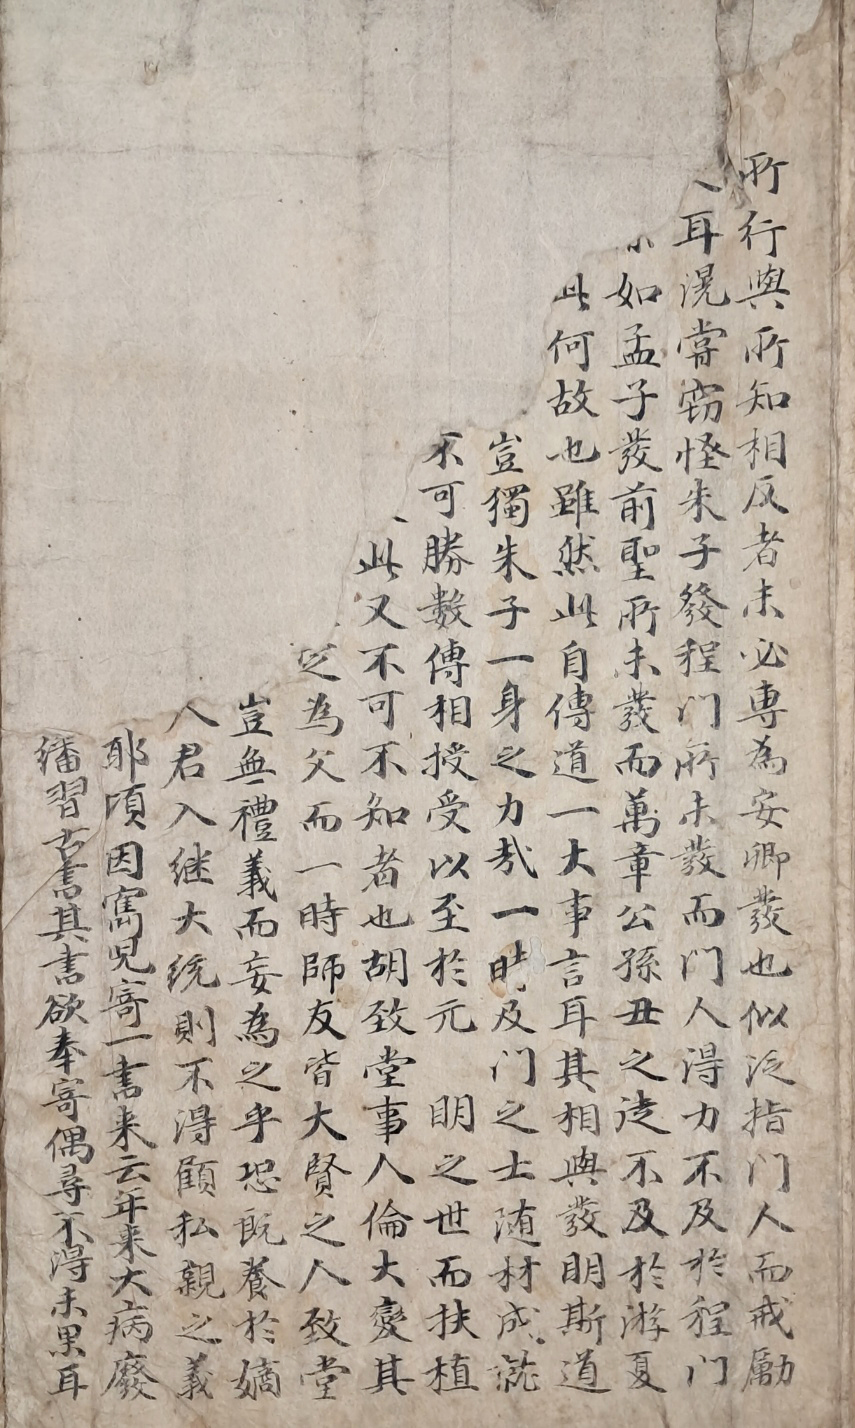 所行與所知相反者未必專為安卿發也似泛指门人而戒勵
耳滉嘗窃怪朱子發程门所未發而门人得力不及於程门
如孟子發前聖所未發而萬章公孫丑之徒不及於游夏
此何故也雖然此自傳道一大事言耳其相與發明斯道
豈獨朱子一身之力㢤一時及门之士随材成就
不可勝數傳相授受以至於元 明之世而扶植
此又不可不知者也胡致堂事人倫大變其
之為父而一時師友皆大賢之人致堂
豈無禮義而妄為之乎恐既養於嫡
人君入継大統則不得顧私親之義
耶頃因寯児寄一書来云年来大病廢
繙習古書其書欲奉寄偶尋不得未果耳